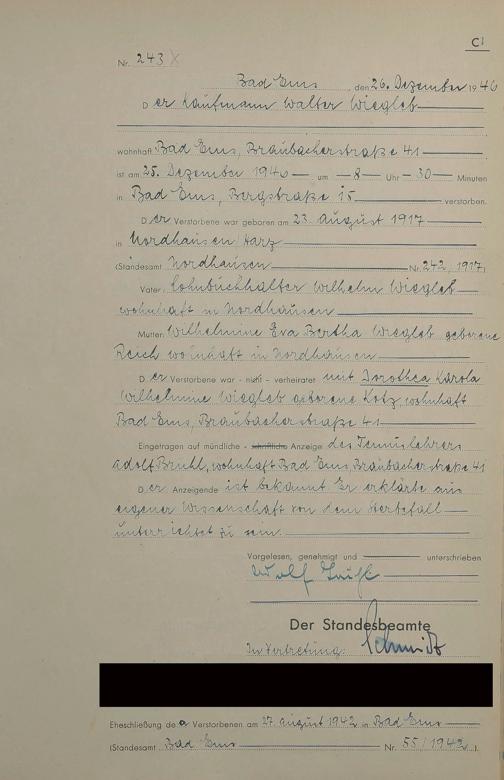 C1
Nr. 243
Bad Ems, den 26. Dezember 1946
Der Kaufmann Walter Wiegleb
wohnhaft Bad Ems, Braubacherstraße 41
ist am 25. Dezember 1946 um 8 Uhr 30 Minuten
in Bad Ems, Bergstraße 15 verstorben.
Der Verstorbene war geboren am 23. August 1917
in Nordhausen/Harz
(Standesamt Nordhausen Nr. 242/1917)
Vater: Lohnbuchhalter Wilhelm Wiegleb
wohnhaft in Nordhausen
Mutter: Wilhelmine Eva Bertha Wiegleb geborene
Reich wohnhaft in Nordhausen
Der Verstorbene war - nicht - verheiratet mit Dorothea Karola
Wilhelmine Wiegleb geborene Kotz, wohnhaft
Bad Ems, Braubacherstraße 41
Eingetragen auf mündliche - schriftliche Anzeige des Tennislehrers
Adolf Brühl, wohnhaft Bad Ems, Braubacherstraße 41
Der Anzeigende ist bekannt. Er erklärte aus
eigener Wissenschaft von dem Sterbefall
unterrichtet zu sein.
Vorgelesen, genehmigt und unterschrieben
Adolf Brühl
Der Standesbeamte
In Vertretung: Schmidt
Eheschließung des Verstorbenen am 27. August 1942 in Bad Ems
(Standesamt Bad Ems Nr. 55/1942).